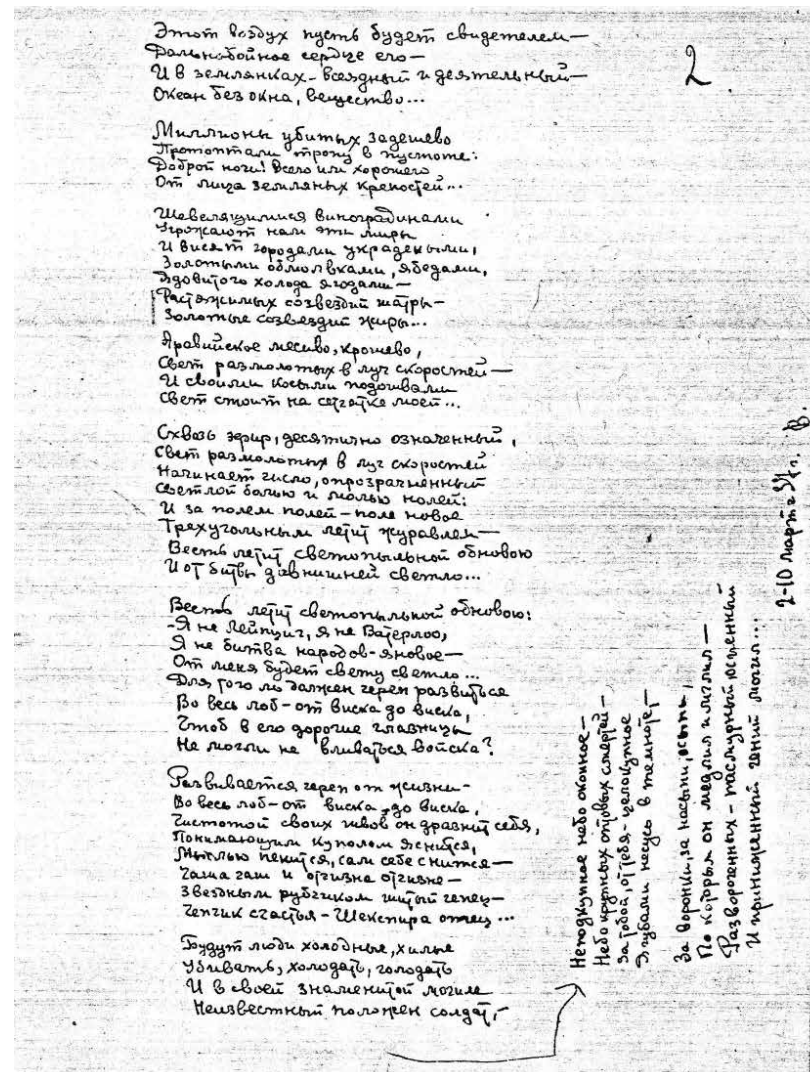 2
Этот воздух пусть будет свидетелем—
Дальнобойное сердце его—
И в землянках – всеядный и деятельный—
Океан без окна, вещество...
Миллионы убитых задешево
Протоптали тропу в пустоте:
Доброй ночи! Всего им хорошего
От лица земляных крепостей...
Шевелящимися виноградинами
Угрожают нам эти миры
И висят городами украденными,
Золотыми обмолвками, ябедами,
Ядовитого холода ягодами—
Растяжимых созвездий шатры—
Золотые созвездий жиры...
Аравийское месиво, крошево,
Свет размолотых в луч скоростей—
И своими косыми подошвами
Свет стоит на сетчатке моей...
Сквозь эфир, десятично означенный,
Свет размолотых в луч скоростей
Начинает число, опрозрачненный
Светлой болью и молью нолей:
И за полем полей – поле новое
Трехугольным летит журавлем—
Весть летит светопыльной обновою
И от битвы давнишней светло...
Весть летит светопыльной обновою:
–Я не Лейпциг, я не Ватерлоо,
Я не битва народов–я новое—
От меня будет свету светло...
Для того ль должен череп развиться
Во весь лоб – от виска до виска,
Чтоб в его дорогие глазницы
Не могли не вливаться войска?
Развивается череп от жизни–
Во весь лоб – от виска до виска,
Чистотой своих швов он дразнит себя,
Понимающим куполом яснится,
Мыслью пенится, сам себе снится—
Чаша чаш и отчизна отчизне–
Звездным рубчиком шитый чепец–
Чепчик счастья – Шекспира отец...
Будут люди холодные, хилые
Убивать, холодать, голодать
И в своей знаменитой могиле
Неизвестный положен солдат,–
Неподкупное небо окопное—
Небо крупных оптовых смертей—
За тобой, от тебя – целокупное
Я губами несусь в темноте,–
За воронки, за насыпи, осыпи,
По которым он медлил и мглил—
Развороченных – пасмурный, оспенный
И приниженный гений могил...
2-10 марта 37 г. В.